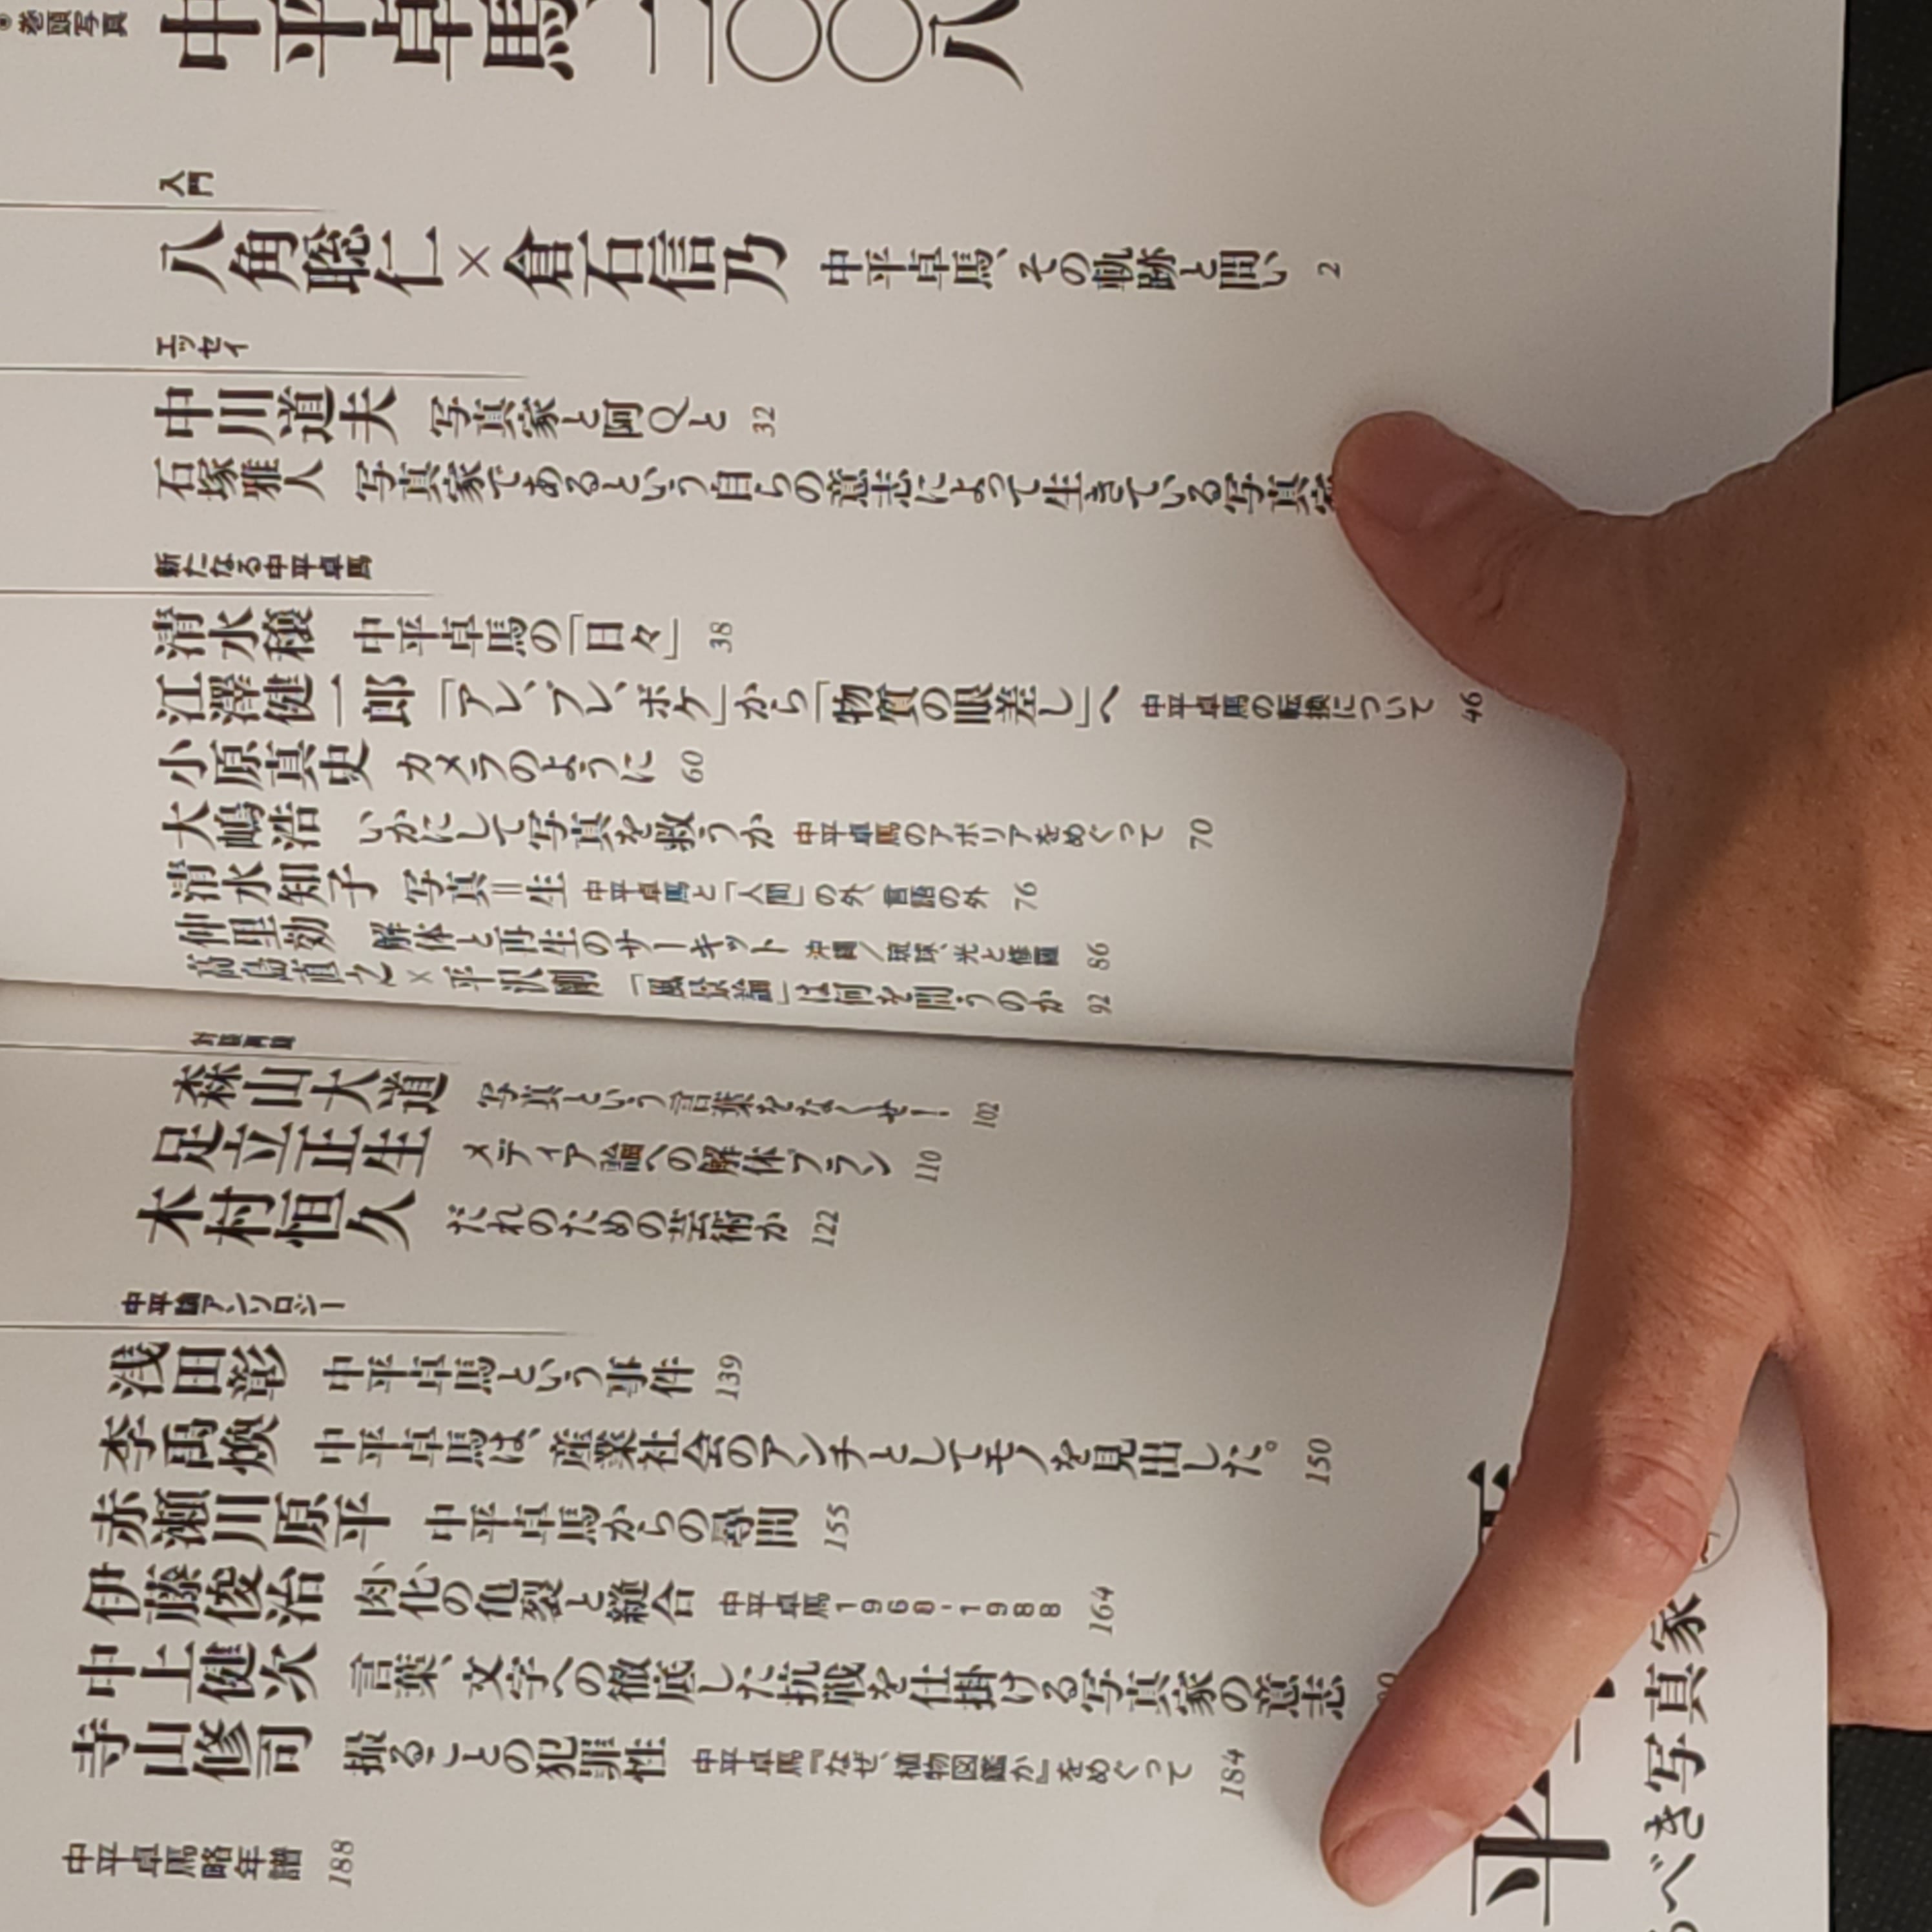 巻頭写真
中平卓馬 二〇〇八
入門
八角聡仁×倉石信乃 中平卓馬、その軌跡と問い 2
エッセイ
中川道夫 写真家と阿Qと 32
石塚雅人 写真家であるという自らの意志によって生きている写真家
新たなる中平卓馬
清水穣 中平卓馬の「日々」 38
江澤健一郎 「アレ、ブレ、ボケ」から「物質の眼差し」へ 中平卓馬の転換について 46
小原真史 カメラのように 60
大嶋浩 いかにして写真を救うか 中平卓馬のアポリアをめぐって 70
清水知子 写真=生 中平卓馬と「人間」の外、言語の外 76
仲里効 解体と再生のサーキット 沖縄/琉球、光と修羅 86
高島直之×平沢剛 「風景論」は何を問うのか 92
対談再録
森山大道 写真という言葉をなくせ! 102
足立正生 メディア論への解体プラン 110
木村恒久 だれのための芸術か 122
中平論アンソロジー
浅田彰 中平卓馬という事件 139
李禹煥 中平卓馬は、産業社会のアンチとしてモノを見出した。 150
赤瀬川原平 中平卓馬からの尋問 155
伊藤俊治 肉化の亀裂と縫合 中平卓馬1968-1988 164
中上健次 言葉、文字への徹底した抗戦を仕掛ける写真家の意志
寺山修司 撮ることの犯罪性 中平卓馬『なぜ、植物図鑑か』をめぐって 184
中平卓馬略年譜 188
平
べき写真家